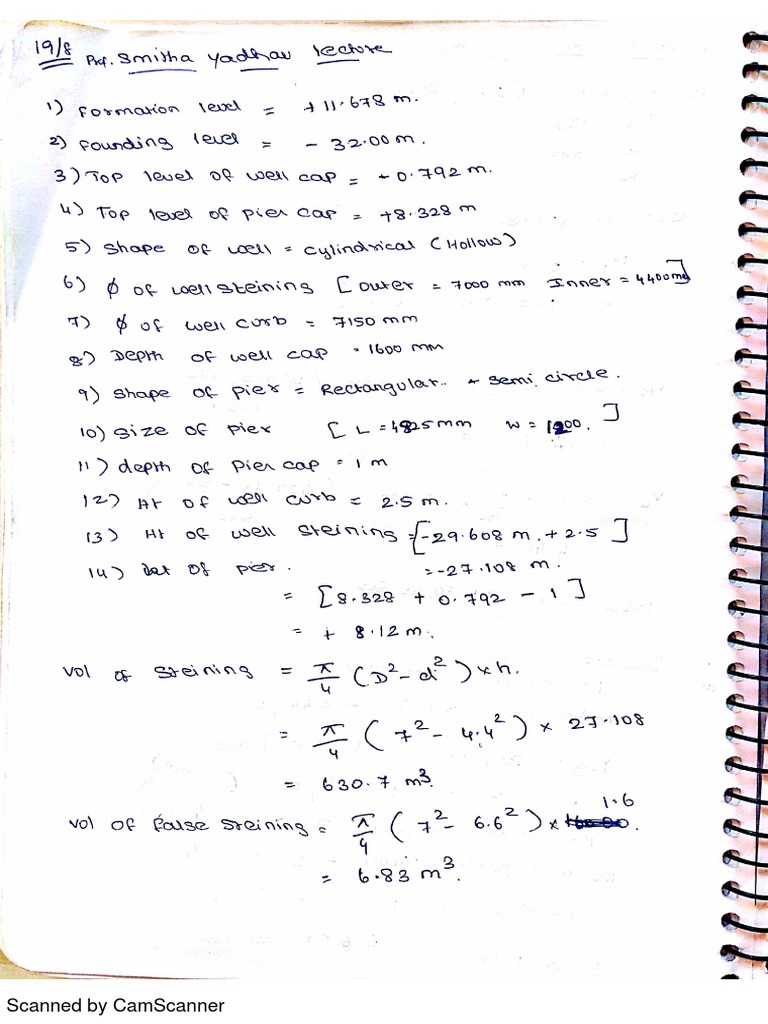 19/8 Prf. Smitha Yadhav lecture
1) Formation level = +11.678 m.
2) Founding level = - 32.00 m.
3) Top level of well cap = -0.792 m.
4) Top level of pier cap = +8.328 m
5) Shape of well = cylindrical (Hollow)
6) ϕ of well steining [outer = 7000 mm Inner = 4400mm]
7) ϕ of well curb = 7150 mm
8) Depth of well cap = 1600 mm
9) Shape of pier = Rectangular + semi circle.
10) Size of pier [L = 4825 mm W = 1200.]
11) depth of Pier cap = 1 m
12) Ht of well curb = 2.5 m.
13) Ht of well steining = [-29.608 m. + 2.5]
= -27.108 m.
14) of pier.
= [8.328 + 0.792 - 1]
= + 8.12 m.
vol of steining = π/4 (D² - d²) × h.
= π/4 (7² - 4.4²) × 27.108
= 630.7 m³.
vol of false steining = π/4 (7² - 6.6²) × 1.6
= 6.83 m³.
Scanned by CamScanner